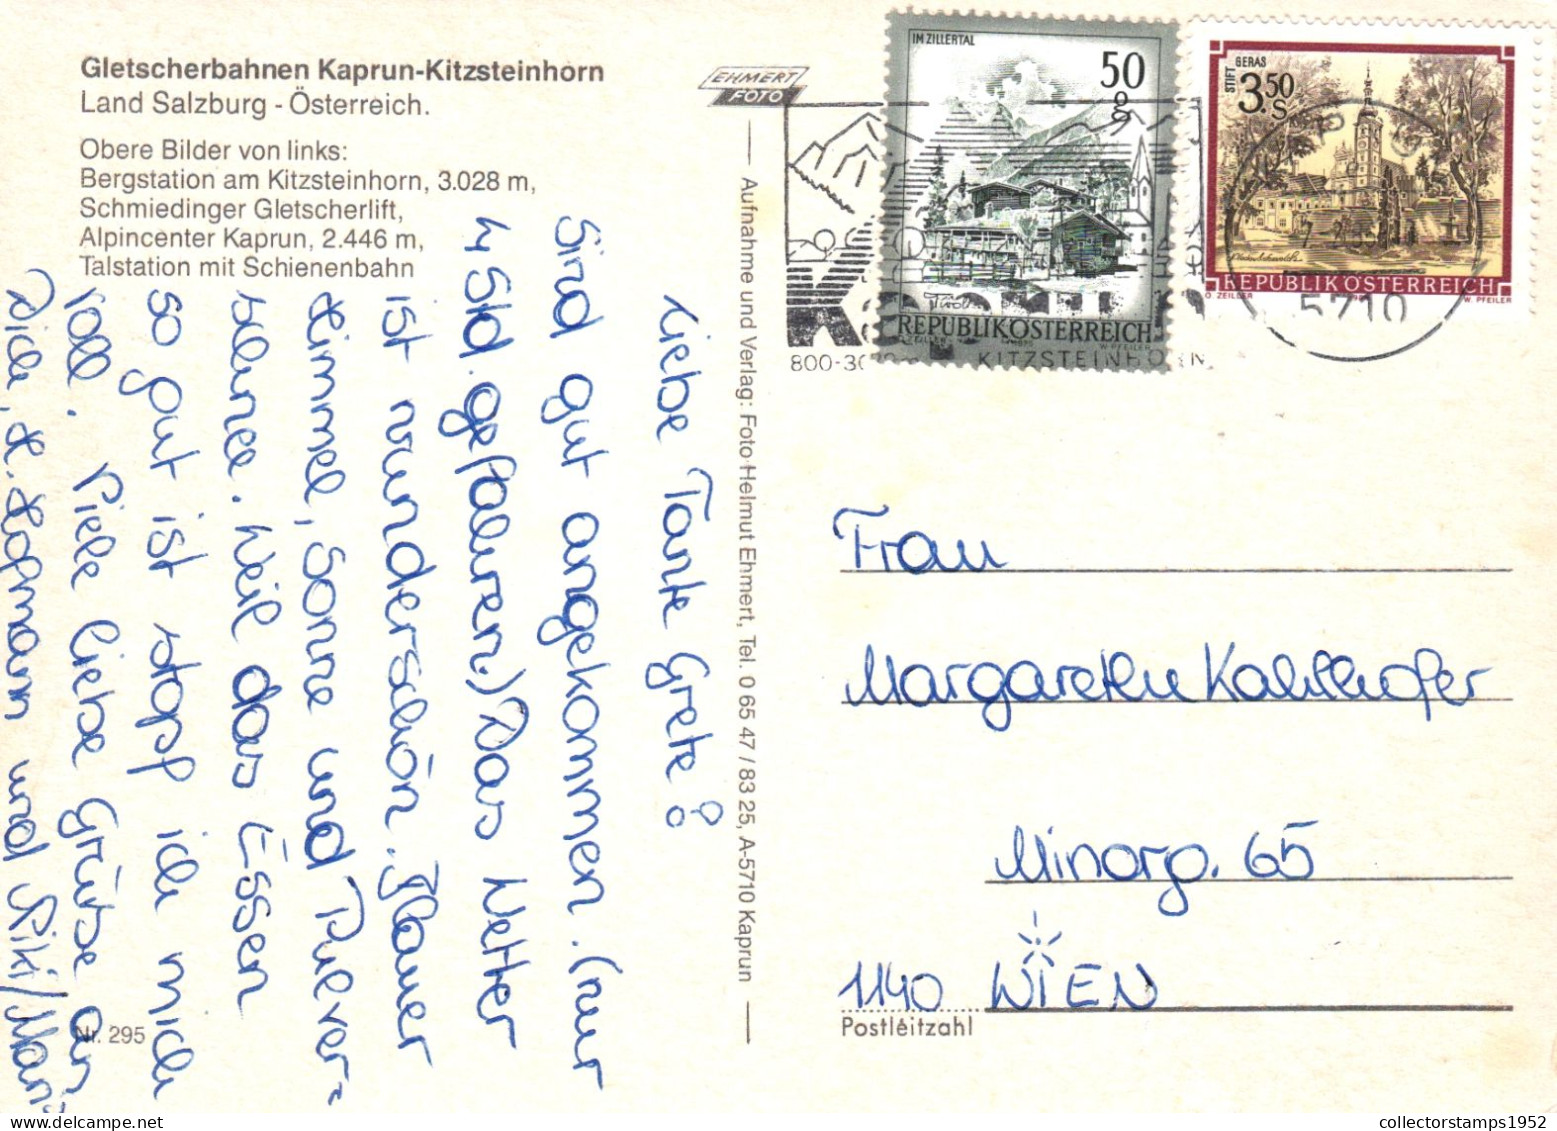 Gletscherbahnen Kaprun-Kitzsteinhorn
Land Salzburg - Österreich.
Obere Bilder von links:
Bergstation am Kitzsteinhorn, 3.028 m,
Schmiedinger Gletscherlift,
Alpincenter Kaprun, 2.446 m,
Talstation mit Schienenbahn
EHMERT
FOTO
IM ZILLERTAL
50
g
REPUBLIK ÖSTERREICH
W. PFEILER
STIFT GERAS
3.50
S
REPUBLIK ÖSTERREICH
O. ZEILER
W. PFEILER
KITZSTEINHORN
5710
Liebe Tante Grete!
Sind gut angekommen. (nur
4 Std. gefahren.) Das Wetter
ist wunderschön. Blauer
Himmel, Sonne und Pulver=
schnee. Weil das Essen
so gut ist stopf ich mich
voll. Viele liebe Grüße an
Dich, H. Hofmann und Niki/Mani
Aufnahme und Verlag: Foto Helmut Ehmert, Tel. 0 65 47 / 83 25, A-5710 Kaprun
Frau
Margarethe Kahlhofer
Minorg. 65
1140 WIEN
Postleitzahl
Nr. 295
collectorstamps1952